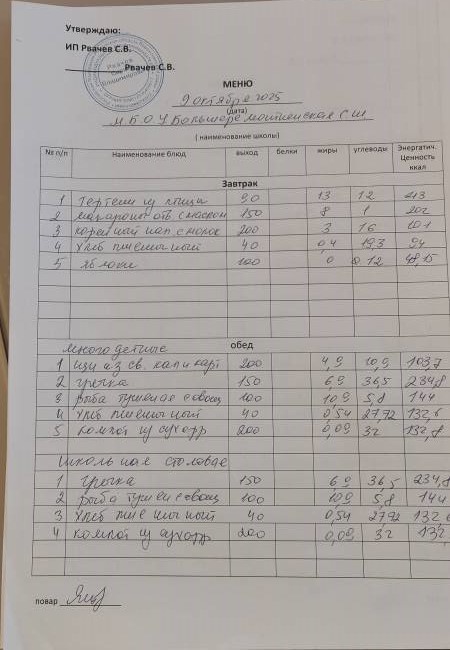 Утверждаю:
ИП Рвачев С.В.
Рвачев С.В.
МЕНЮ
9 октября 2025
(дата)
М Б О У Большеремонтненская С Ш
( наименование школы)
№ п/п Наименование блюд выход белки жиры углеводы Энергатич. Ценность ккал
Завтрак
1 тефтели из птицы 90 13 12 213
2 макароны отв с маслом 150 8 1 202
3 кофейный нап с молок 200 3 16 101
4 хлеб пшеничный 40 0,4 19,3 94
5 яблоки 100 0 0 12 48,15
многодетные обед
1 щи из св. кап и карт 200 4,9 10,9 103,7
2 гречка 150 6,9 36,5 234,8
3 рыба тушеная с овощ 100 10,9 5,8 144
4 хлеб пшеничный 40 0,54 27,72 132,6
5 компот из сухофр 200 0,09 32 132,8
школьная столовая
1 гречка 150 6,9 36,5 234,8
2 рыба тушен с овощ 100 10,9 5,8 144
3 хлеб пшеничный 40 0,54 27,92 132,6
4 компот из сухофр 200 0,09 32 132,
повар